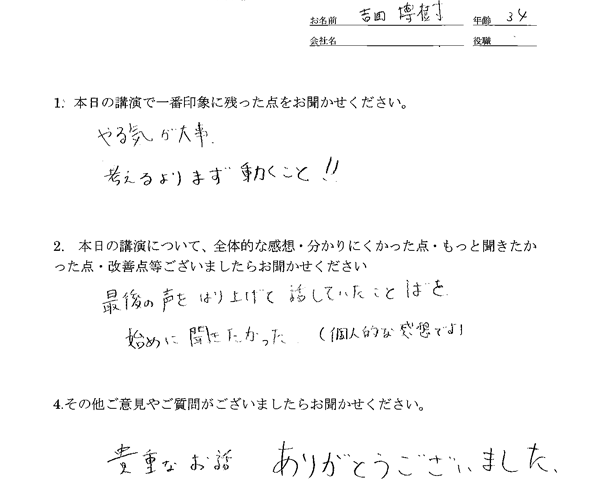 お名前 吉田 博樹 年齢 34
会社名 役職
1. 本日の講演で一番印象に残った点をお聞かせください。
やる気が大事.
考えるよりまず動くこと!!
2. 本日の講演について、全体的な感想・分かりにくかった点・もっと聞きたか
った点・改善点等ございましたらお聞かせください
最後の声をはり上げて話していたことばを
始めに聞きたかった (個人的な感想です)
4.その他ご意見やご質問がございましたらお聞かせください。
貴重なお話 ありがとうございました、